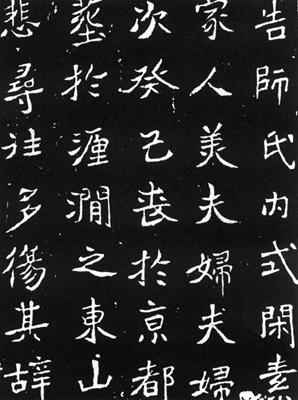 告師氏内式閑素
家人美夫婦夫婦
次癸巳喪於亰都
塟於瀍澗之東山
悲尋往多傷其辭